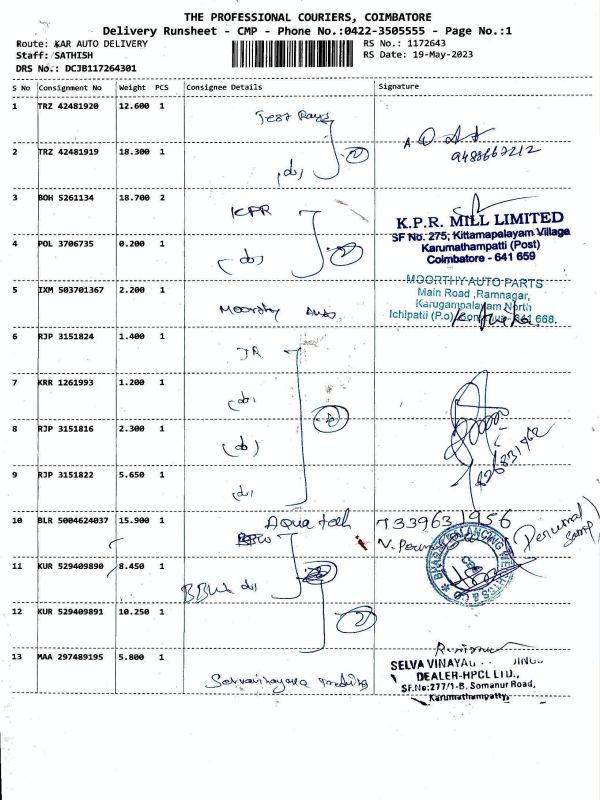 THE PROFESSIONAL COURIERS, COIMBATORE
Delivery Runsheet - CMP - Phone No.:0422-3505555 - Page No.:1
Route: KAR AUTO DELIVERY
RS No.: 1172643
Staff: SATHISH
RS Date: 19-May-2023
DRS No.: DCJB117264301
S No Consignment No Weight PCS Consignee Details Signature
1 TRZ 42481920 12.600 1
2 TRZ 42481919 18.300 1 (do) 2
9488662212
3 BOH 5261134 18.700 2 KPR
K.P.R. MILL LIMITED
SF No. 275, Kittampalayam Village
Karumathampatti (Post)
Coimbatore - 641 659
4 POL 3706735 0.200 1 (do) 2
5 IXM 503701367 2.200 1 Moorthy Auto
MOORTHY AUTO PARTS
Main Road, Ramnagar,
Karugampalayam North
Ichipatti (P.o) 641 668.
6 RJP 3151824 1.400 1 JR
7 KRR 1261993 1.200 1 (do)
8 RJP 3151816 2.300 1 (do) 4
9 RJP 3151822 5.650 1 (do)
10 BLR 5004624037 15.900 1 Aqua tech
7339631956
Perumal
samy
11 KUR 529409890 8.450 1 do)
12 KUR 529409891 10.250 1 2
13 MAA 297489195 5.800 1 Selvavinayaga
SELVA VINAYAG
DEALER-HPCL LTD.,
SF.No:277/1-B, Somanur Road,
Karumathampatty,